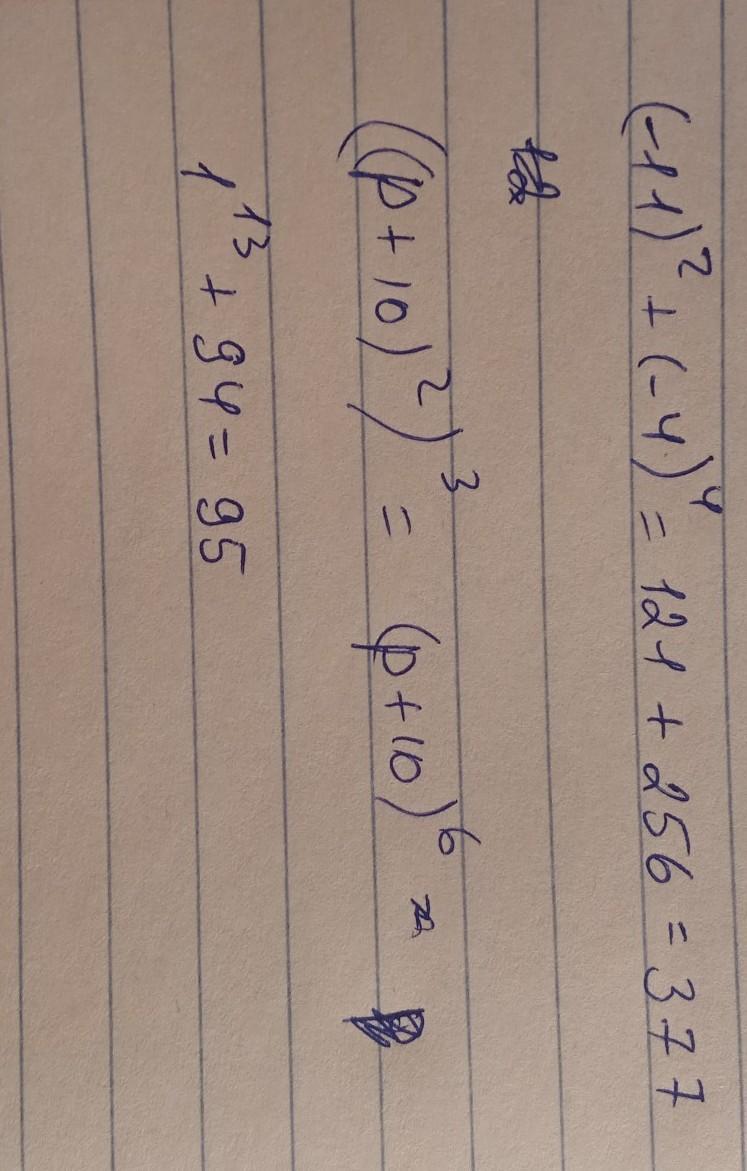 (-11)² + (-4)⁴ = 121 + 256 = 377
((p + 10)²)³ = (p + 10)⁶
1¹³ + 94 = 95